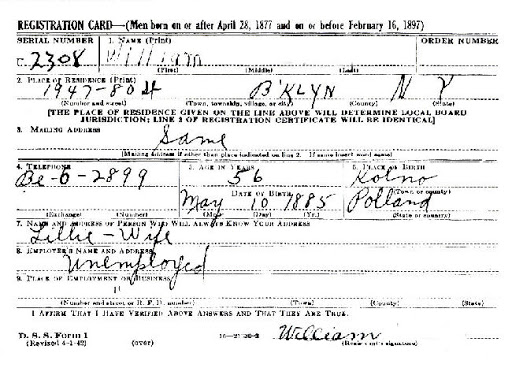 REGISTRATION CARD—(Men born on or after April 28, 1877 and on or before February 16, 1897)
SERIAL NUMBER 1. NAME (Print) ORDER NUMBER
U 2308 William
(First) (Middle) (Last)
2. PLACE OF RESIDENCE (Print)
1947-80 st B'KLYN N Y
(Number and street) (Town, township, village, or city) (County) (State)
[THE PLACE OF RESIDENCE GIVEN ON THE LINE ABOVE WILL DETERMINE LOCAL BOARD
JURISDICTION; LINE 2 OF REGISTRATION CERTIFICATE WILL BE IDENTICAL]
3. MAILING ADDRESS
Same
[Mailing address if other than place indicated on line 2. If same insert word same]
4. TELEPHONE 5. AGE IN YEARS 6. PLACE OF BIRTH
Be-6-2899 56 Kolno
DATE OF BIRTH (Town or county)
May 10 1885 Polland
(Exchange) (Number) (Mo.) (Day) (Yr.) (State or country)
7. NAME AND ADDRESS OF PERSON WHO WILL ALWAYS KNOW YOUR ADDRESS
Lillie - Wife
8. EMPLOYER'S NAME AND ADDRESS
Unemployed
9. PLACE OF EMPLOYMENT OR BUSINESS
"
(Number and street or R. F. D. number) (Town) (County) (State)
I AFFIRM THAT I HAVE VERIFIED ABOVE ANSWERS AND THAT THEY ARE TRUE.
D. S. S. Form 1 William
(Revised 4-1-42) (over) (Registrant's signature)